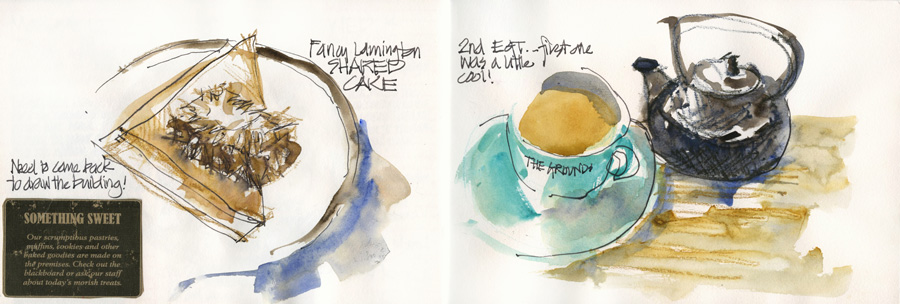 Fancy Lamington
SHARED
CAKE
Need to come back
to draw the building!
SOMETHING SWEET
Our scrumptious pastries,
muffins, cookies and other
baked goodies are made on
the premises. Check out the
blackboard or ask our staff
about today's morish treats.
2nd EGT... first one
was a little
cool!
THE GROUNDS